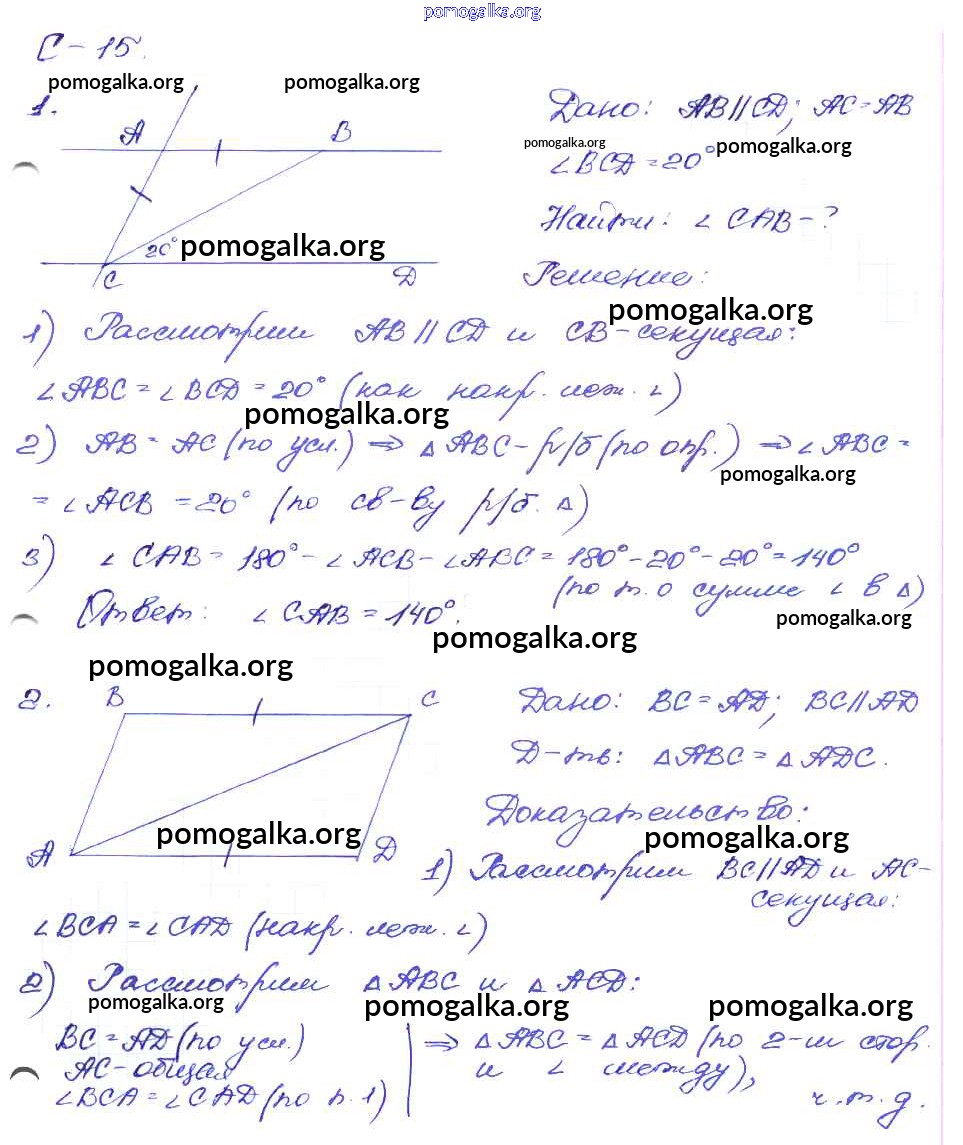 pomogalka.org
С-15.
pomogalka.org pomogalka.org
1.
A B
20° pomogalka.org
C D
Дано: AB||CD; AC=AB
pomogalka.org pomogalka.org
∠BCD=20°
Найти: ∠CAB-?
Решение:
pomogalka.org
1) Рассмотрим AB||CD и CB-секущая:
∠ABC=∠BCD=20° (как накр. леж. ∠)
pomogalka.org
2) AB=AC (по усл.) ⇒ △ABC-р/б (по опр.) ⇒ ∠ABC=
pomogalka.org
=∠ACB=20° (по св-ву р/б. △)
3) ∠CAB=180°-∠ACB-∠ABC=180°-20°-20°=140°
(по т. о сумме ∠ в △)
Ответ: ∠CAB=140°.
pomogalka.org
pomogalka.org
pomogalka.org
2.
B C
pomogalka.org
A D
Дано: BC=AD; BC||AD
Д-ть: △ABC=△ADC.
Доказательство:
pomogalka.org
1) Рассмотрим BC||AD и AC-
секущая:
∠BCA=∠CAD (накр. леж. ∠)
2) Рассмотрим △ABC и △ACD:
pomogalka.org pomogalka.org pomogalka.org
BC=AD (по усл.)
AC-общая
∠BCA=∠CAD (по п. 1)
⇒ △ABC=△ACD (по 2-м стор.
и ∠ между),
ч.т.д.